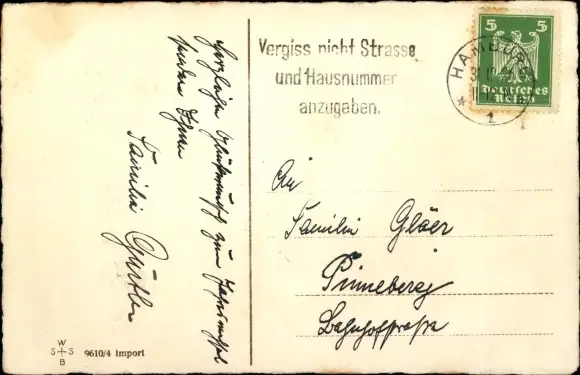 Herzlichen Glückwunsch zum Jahreswechsel
sendet Ihnen
Familie
W
S+S
B
9610/4 Import
Vergiss nicht Strasse
und Hausnummer
anzugeben.
HAMBURG
31.12.
* 1
5 5
Deutsches
Reich
An
Familie Gläer
Pinneberg
Bahnhofstraße